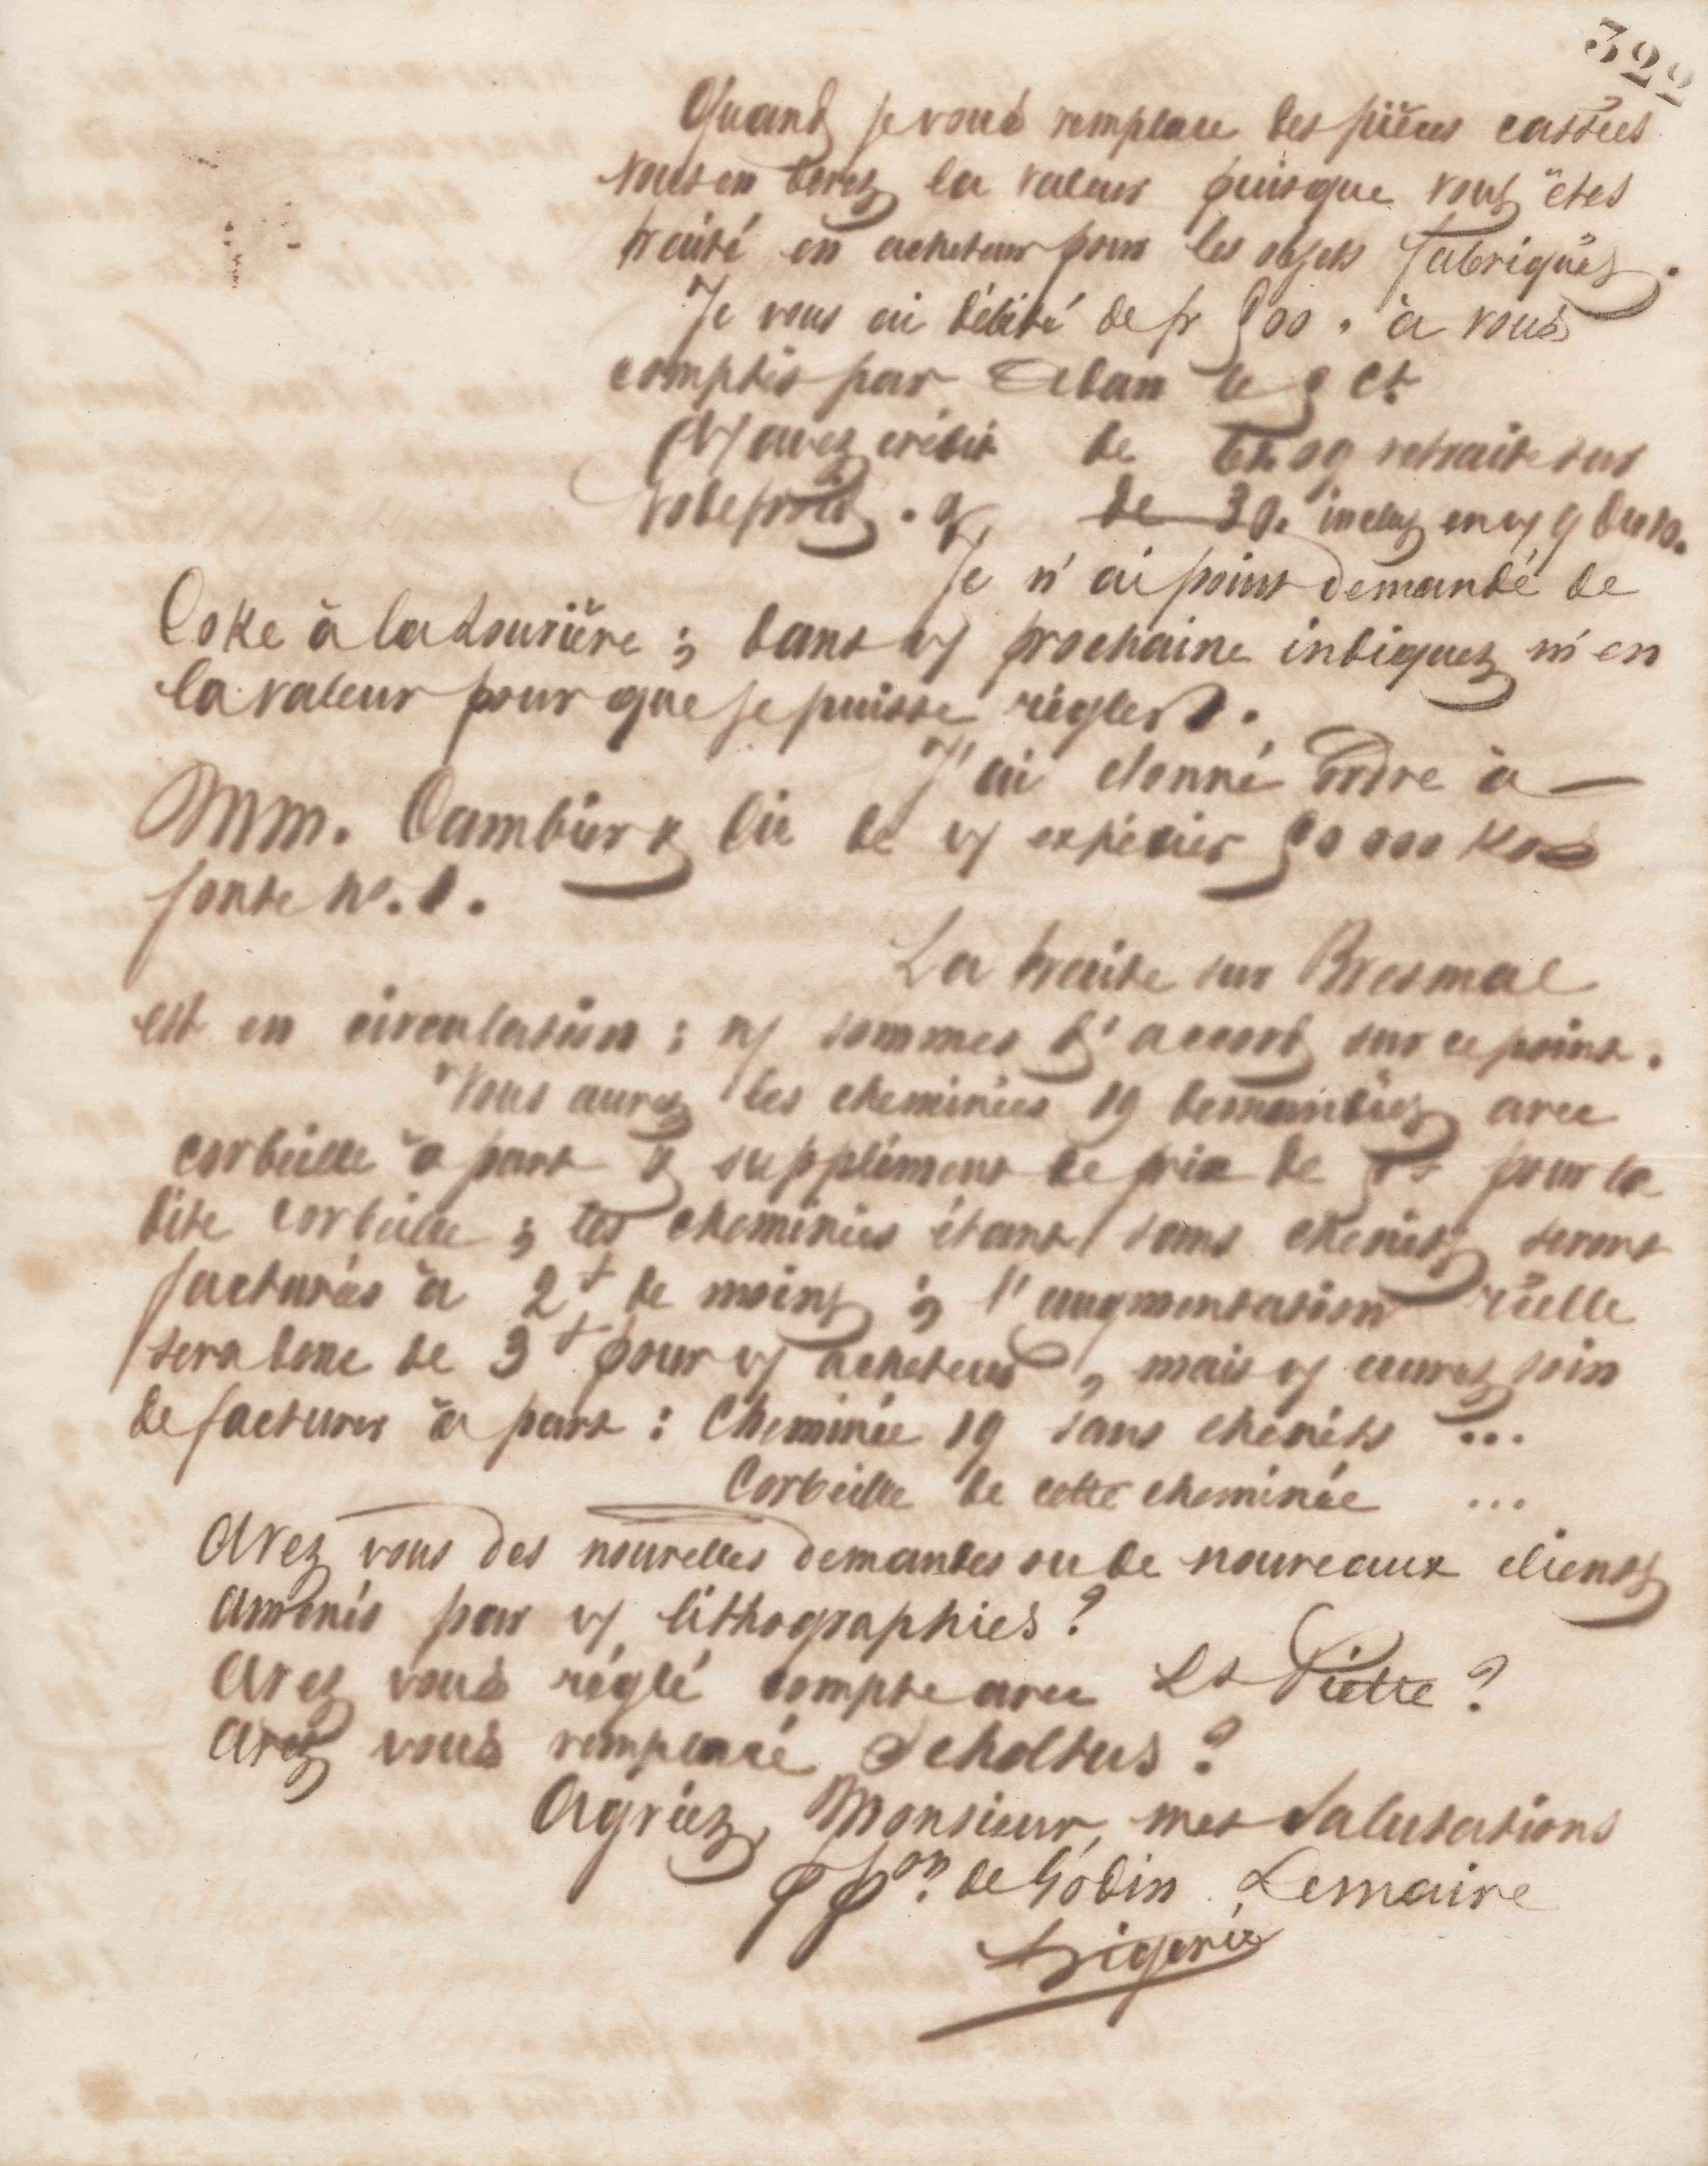 322
Quand je vous remplace des pièces cassées
vous en devez la valeur puisque vous êtes
traité en acheteur pour les objets fabriqués.
Je vous ai débité de fr 500. à vous
comptés par Alban le 5 Ct
Vs avez crédit de retraite sur
de 30. inclus en vs 9 buros.
Je n'ai point demandé de
Coke à la Louvière ; dans vs prochaine indiquez m'en
la valeur pour que je puisse régler.
J'ai donné ordre à —
MM. Cambier & Cie de vs expédier 50 000 Kos
fonte No. 1.
La traite sur Bresmal
est en circulation ; ns sommes d'accord sur ce point.
Vous aurez les cheminées 19 demandées avec
corbeille à part & supplément de prix de 5f pour la
dite corbeille ; les cheminées étant sans chenets seront
facturées à 2f de moins ; l'augmentation réelle
sera donc de 3f pour vs acheteurs, mais vs aurez soin
de facturer à part : Cheminée 19 sans chenets ...
Corbeille de cette cheminée ...
Avez vous des nouvelles demandes ou de nouveaux clients
amenés par vs lithographies ?
Avez vous réglé compte avec Lt Piette ?
Avez vous remplacé Scholtus ?
Agréez, Monsieur, mes Salutations
ppon. de Godin Lemaire